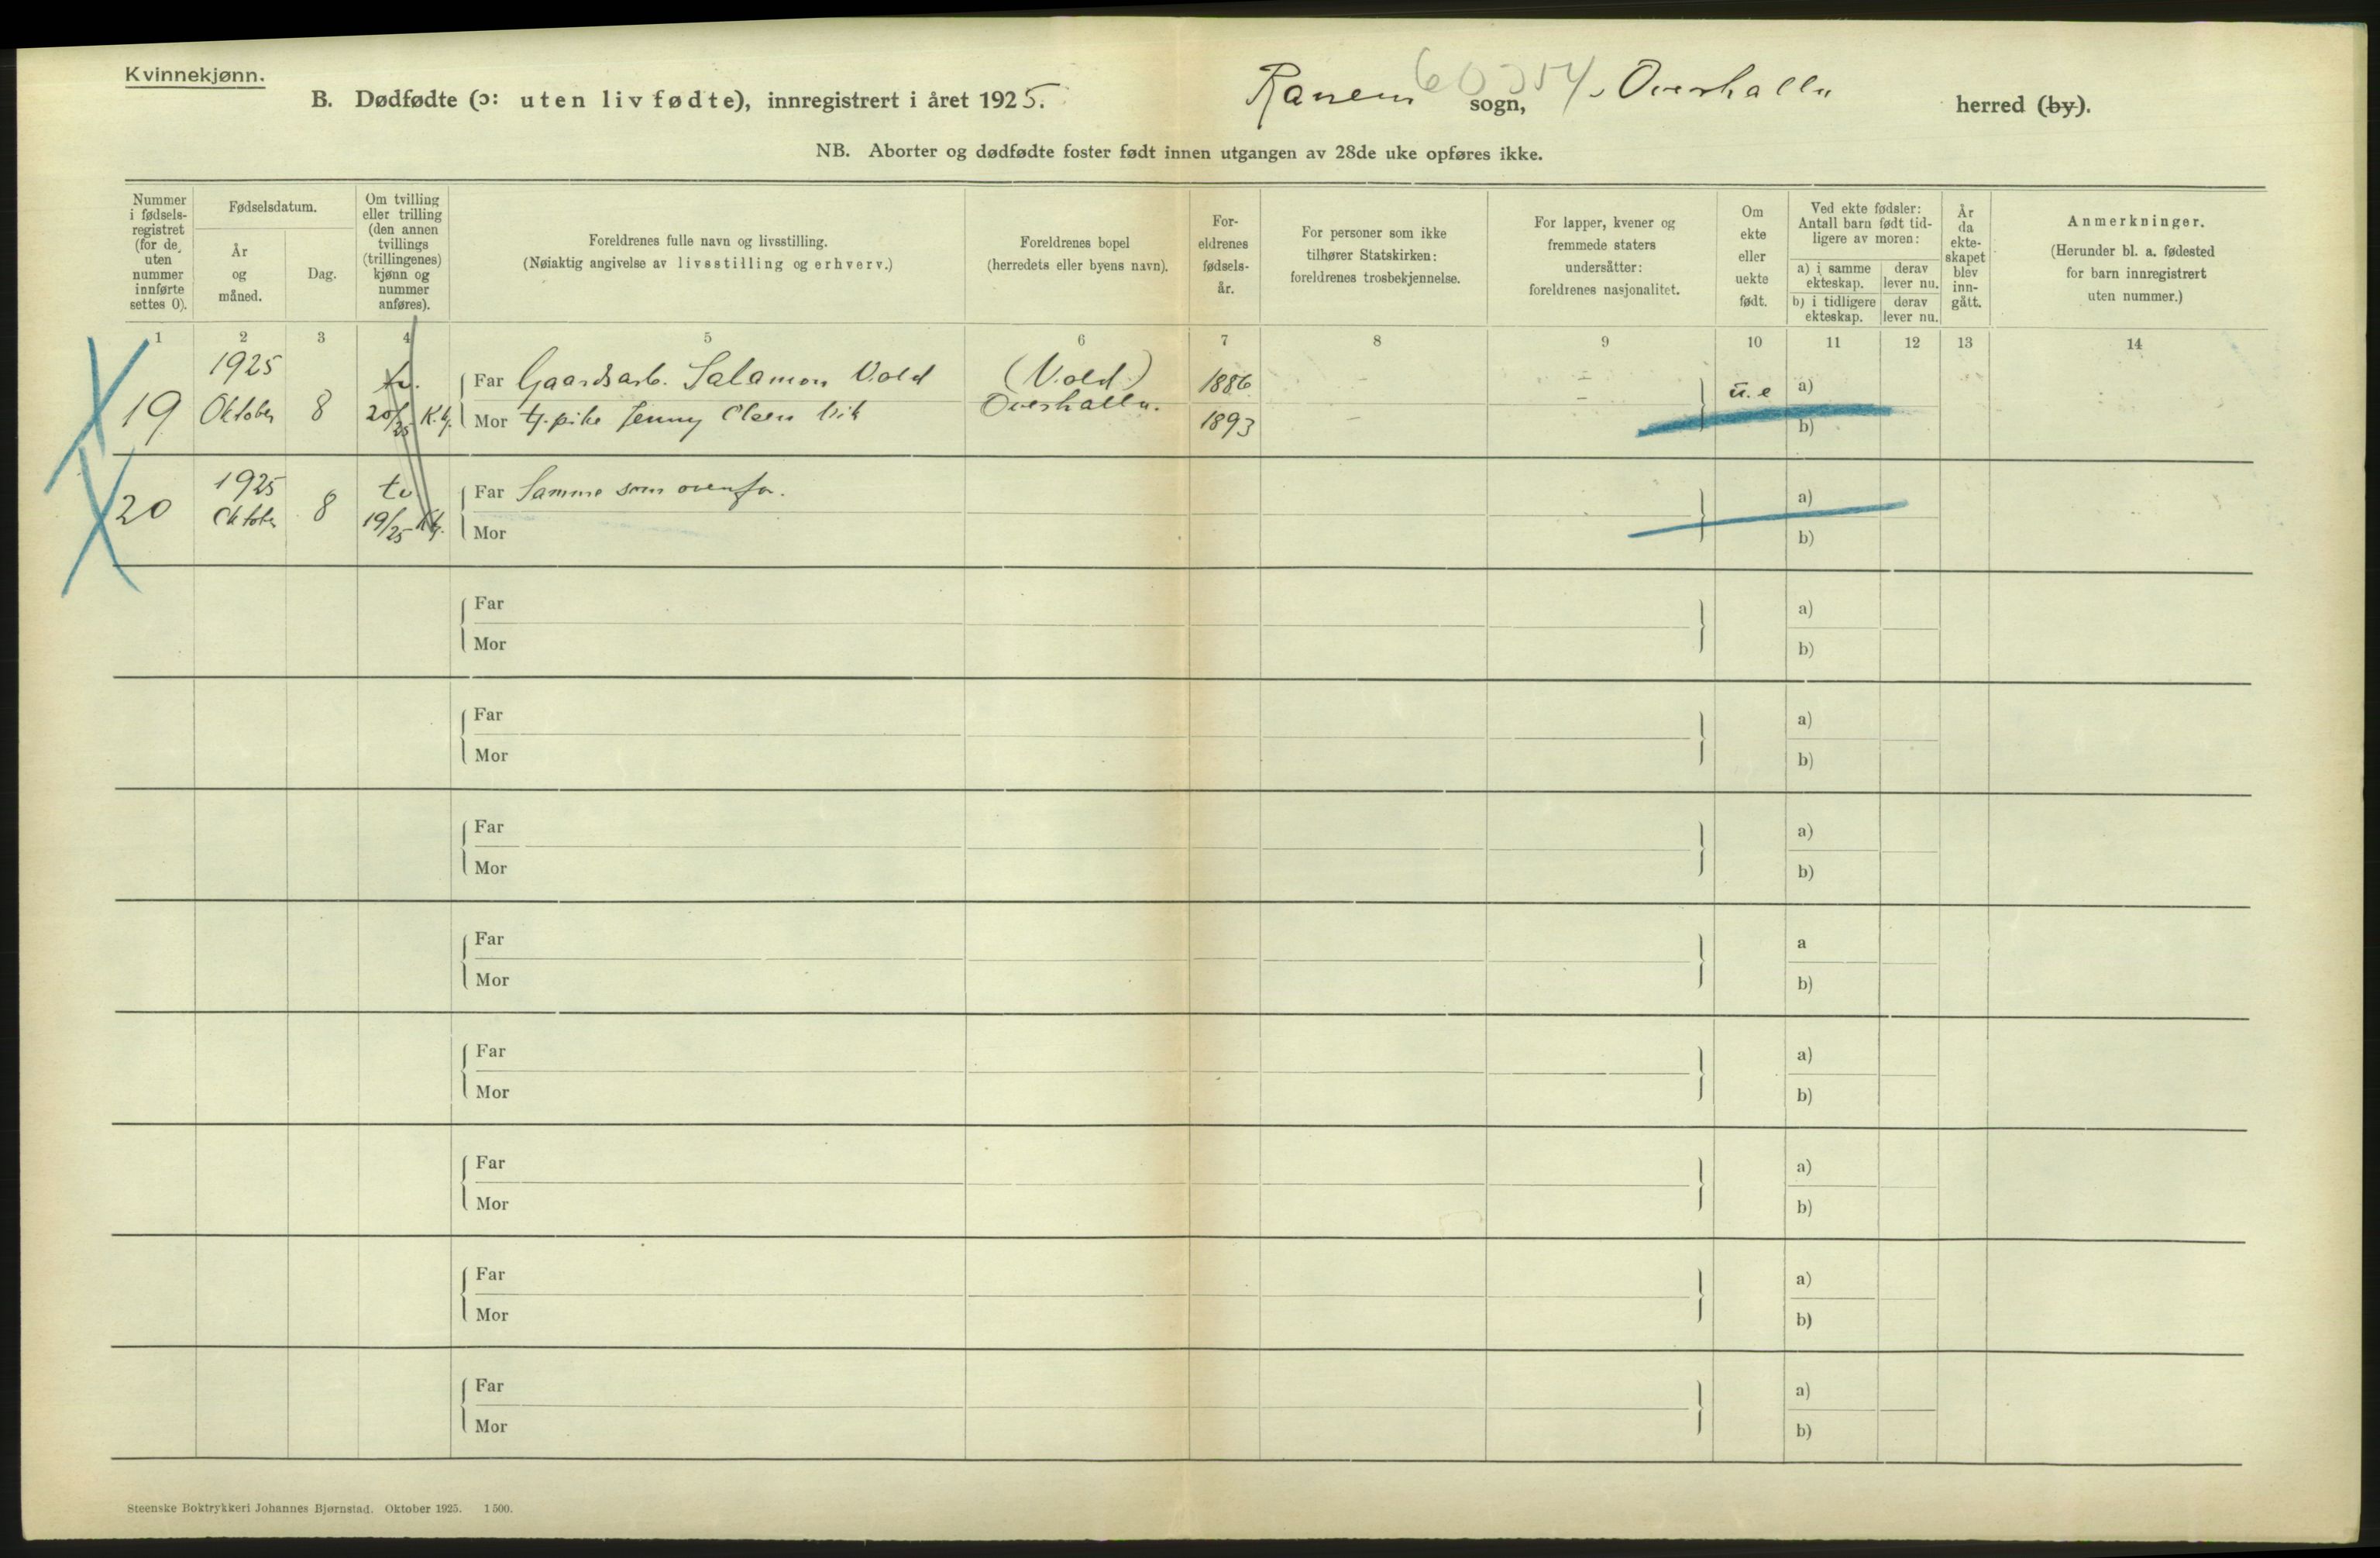 Kvinnekjønn.
B. Dødfødte (ɔ: uten liv fødte), innregistrert i året 1925.
Ranem sogn, Overhalla herred (by).
NB. Aborter og dødfødte foster født innen utgangen av 28de uke opføres ikke.
Nummer
i fødsels-
registret
(for de
uten
nummer
innførte
settes 0).
Fødselsdatum.
År
og
måned.
Dag.
Om tvilling
eller trilling
(den annen
tvillings
(trillingenes)
kjønn og
nummer
anføres).
Foreldrenes fulle navn og livsstilling.
(Nøiaktig angivelse av livsstilling og erhverv.)
Foreldrenes bopel
(herredets eller byens navn).
For-
eldrenes
fødsels-
år.
For personer som ikke
tilhører Statskirken:
foreldrenes trosbekjennelse.
For lapper, kvener og
fremmede staters
undersåtter:
foreldrenes nasjonalitet.
Om
ekte
eller
uekte
født.
Ved ekte fødsler:
Antall barn født tid-
ligere av moren:
a) i samme
ekteskap.
derav
lever nu.
b) i tidligere
ekteskap.
derav
lever nu.
År
da
ekte-
skapet
blev
inn-
gått.
Anmerkninger.
(Herunder bl. a. fødested
for barn innregistrert
uten nummer.)
1 2 3 4 5 6 7 8 9 10 11 12 13 14
19
1925
Oktober
8
tv.
20/25 K.kj.
Far Gaardsarb. Salamon Vold
Mor tj.pike Jenny Olsen Vik
(Vold)
Overhalla.
1886
1893
u.e
a)
b)
20
1925
Oktober
8
tv
19/25 Kkj.
Far Samme som ovenfor.
Mor
a)
b)
Far
Mor
a)
b)
Far
Mor
a)
b)
Far
Mor
a)
b)
Far
Mor
a
b)
Far
Mor
a)
b)
Far
Mor
a)
b)
Far
Mor
a)
b)
Far
Mor
a)
b)
Steenske Boktrykkeri Johannes Bjørnstad. Oktober 1925. 1500.